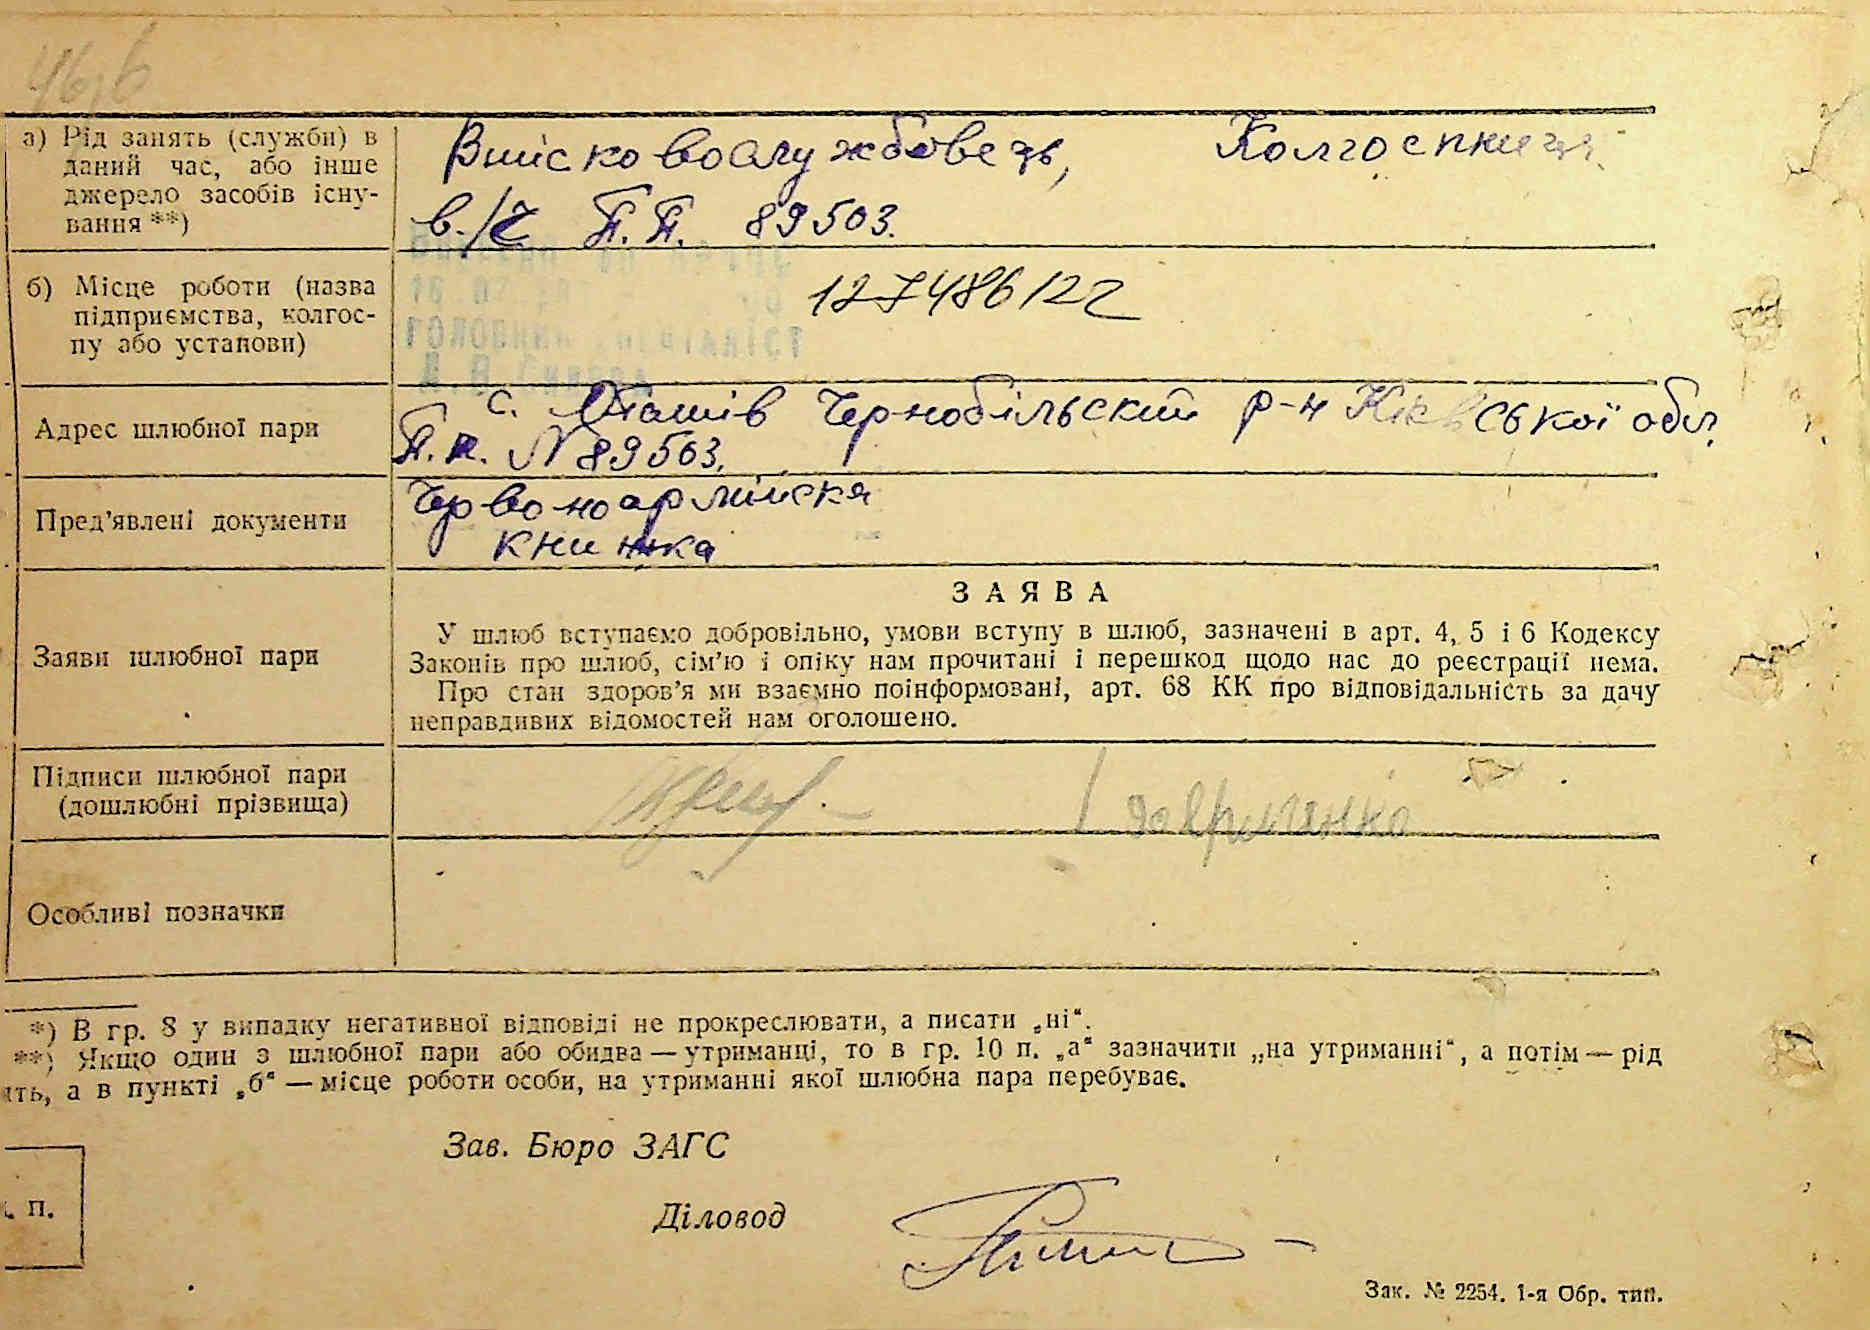 а) Рід занять (служби) в
даний час, або інше
джерело засобів існу-
вання **)
Військовослужбовець,
Колгоспниця
в./ч П.П. 89503.
б) Місце роботи (назва
підприємства, колгос-
пу або установи)
127486122
ГОЛОВНИЙ СПЕЦІАЛІСТ
Адрес шлюбної пари
с. Оташів Чернобільский р-н Київської обл.
П.п. N 89503.
Пред'явлені документи
Червоноармійска
книжка
Заяви шлюбної пари
ЗАЯВА
У шлюб вступаємо добровільно, умови вступу в шлюб, зазначені в арт. 4, 5 і 6 Кодексу
Законів про шлюб, сім'ю і опіку нам прочитані і перешкод щодо нас до реєстрації нема.
Про стан здоров'я ми взаємно поінформовані, арт. 68 КК про відповідальність за дачу
неправдивих відомостей нам оголошено.
Підписи шлюбної пари
(дошлюбні прізвища)
Особливі позначки
*) В гр. 8 у випадку негативної відповіді не прокреслювати, а писати „ні“.
**) Якщо один з шлюбної пари або обидва — утриманці, то в гр. 10 п. „а“ зазначити „на утриманні“, а потім — рід
ять, а в пункті „б“ — місце роботи особи, на утриманні якої шлюбна пара перебуває.
Зав. Бюро ЗАГС
п.
Діловод
Зак. № 2254. 1-я Обр. тип.